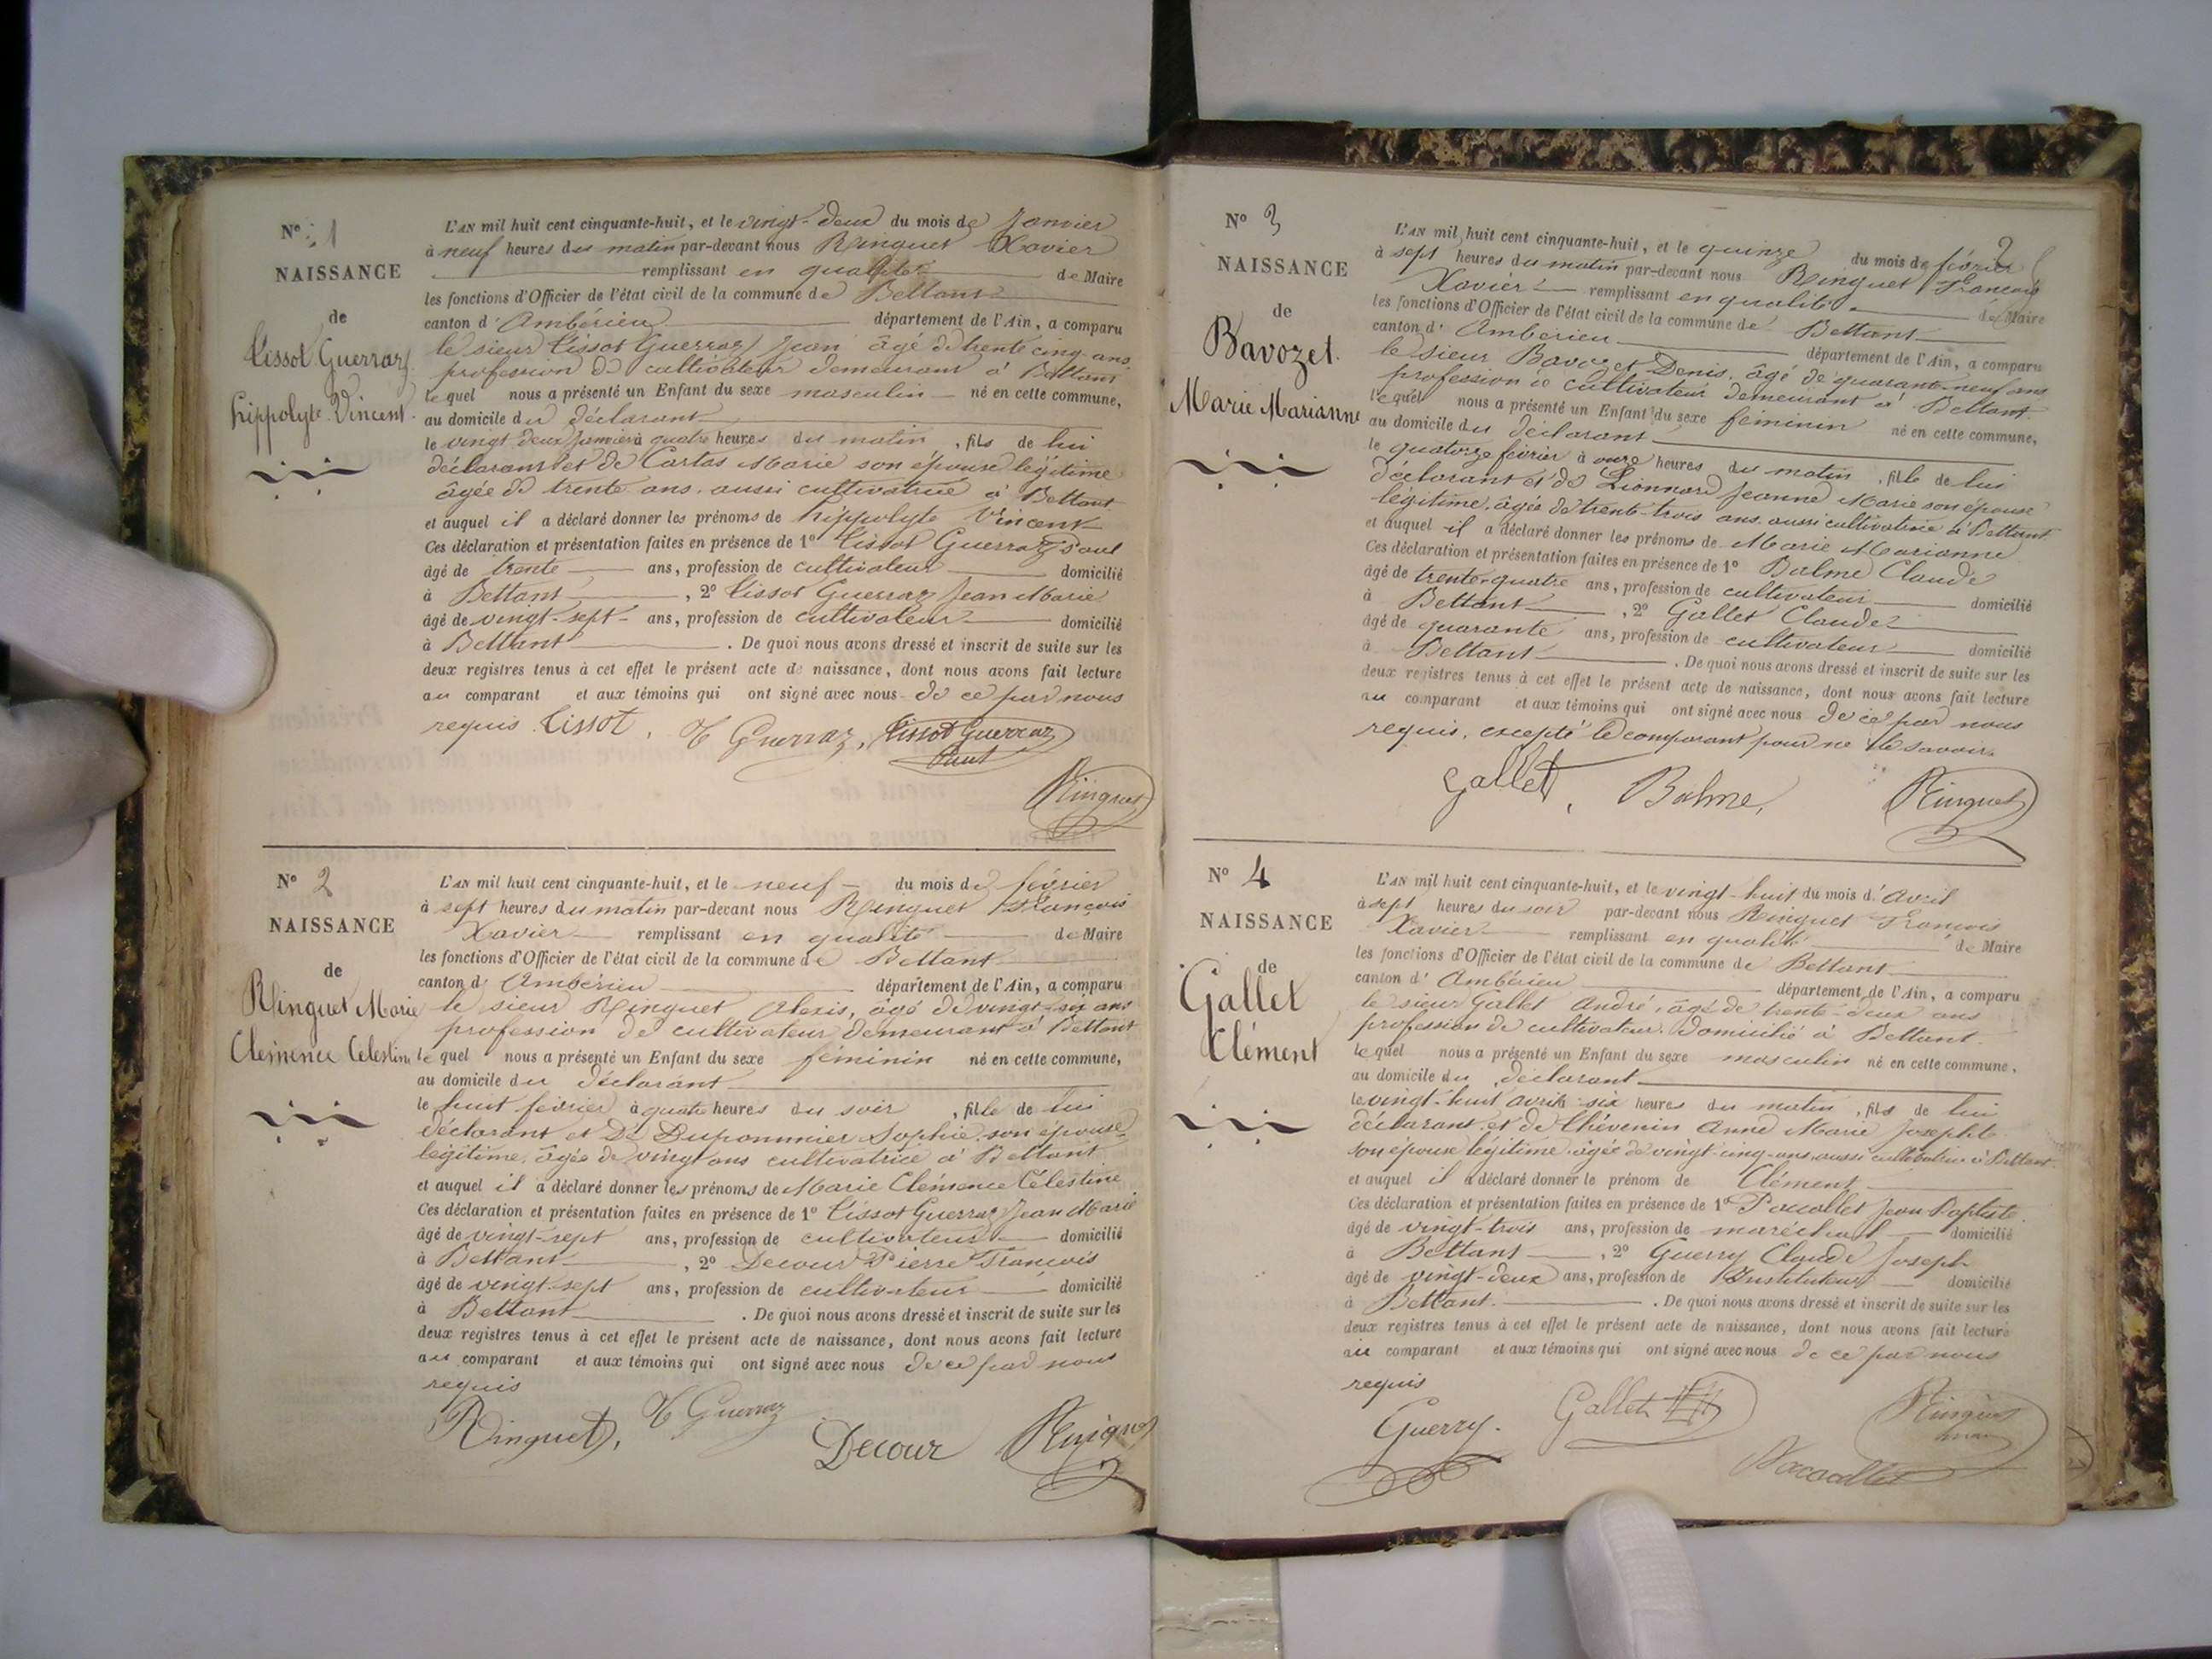 N° 1
NAISSANCE
de
Tissot Guerraz
hippolyte Vincent.
L'AN mil huit cent cinquante-huit, et le vingt-deux du mois de Janvier
à neuf heures du matin par-devant nous Ringuet Xavier
remplissant en qualité de Maire
les fonctions d'Officier de l'état civil de la commune de Bettant
canton d'Ambérieu département de l'Ain, a comparu
le sieur Tissot Guerraz Jean âgé de trente cinq ans
profession de cultivateur demeurant à Bettant
lequel nous a présenté un Enfant du sexe masculin né en cette commune,
au domicile du déclarant
le vingt deux Janvier à quatre heures du matin, fils de lui
déclarant et de Cartas Marie son épouse légitime
âgée de trente ans, aussi cultivatrice à Bettant
et auquel il a déclaré donner les prénoms de hippolyte Vincent
Ces déclaration et présentation faites en présence de 1° Tissot Guerraz Paul
âgé de trente ans, profession de cultivateur domicilié
à Bettant, 2° Tissot Guerraz Jean Marie
âgé de vingt-sept ans, profession de cultivateur domicilié
à Bettant. De quoi nous avons dressé et inscrit de suite sur les
deux registres tenus à cet effet le présent acte de naissance, dont nous avons fait lecture
au comparant et aux témoins qui ont signé avec nous de ce par nous
requis. Tissot, T Guerraz, Tissot Guerraz
Paul
Ringuet
N° 2
NAISSANCE
de
Ringuet Marie
Clémence Célestine
L'AN mil huit cent cinquante-huit, et le neuf du mois de février
à sept heures du matin par-devant nous Ringuet François
Xavier remplissant en qualité de Maire
les fonctions d'Officier de l'état civil de la commune de Bettant
canton d'Ambérieu département de l'Ain, a comparu
le sieur Ringuet Alexis, âgé de vingt-six ans
profession de cultivateur demeurant à Bettant
lequel nous a présenté un Enfant du sexe féminin né en cette commune,
au domicile du déclarant
le huit février à quatre heures du soir, fille de lui
déclarant et de Duponmier Sophie, son épouse
légitime, âgée de vingt ans cultivatrice à Bettant
et auquel il a déclaré donner les prénoms de Marie Clémence Célestine
Ces déclaration et présentation faites en présence de 1° Tissot Guerraz Jean Marie
âgé de vingt-sept ans, profession de cultivateur domicilié
à Bettant, 2° Decour Pierre François
âgé de vingt-sept ans, profession de cultivateur domicilié
à Bettant. De quoi nous avons dressé et inscrit de suite sur les
deux registres tenus à cet effet le présent acte de naissance, dont nous avons fait lecture
au comparant et aux témoins qui ont signé avec nous de ce par nous
requis
Ringuet, T Guerraz Decour Ringuet
2
N° 3
NAISSANCE
de
Bavozet.
Marie Marianne
L'AN mil huit cent cinquante-huit, et le quinze du mois de février
à sept heures du matin par-devant nous Ringuet François
Xavier remplissant en qualité de Maire
les fonctions d'Officier de l'état civil de la commune de Bettant
canton d'Ambérieu département de l'Ain, a comparu
le sieur Bavozet Denis, âgé de quarante-neuf ans
profession de cultivateur demeurant à Bettant.
lequel nous a présenté un Enfant du sexe féminin né en cette commune,
au domicile du déclarant
le quatorze février à onze heures du matin, fille de lui
déclarant et de Lionnard Jeanne Marie son épouse
légitime, âgée de trente-trois ans, aussi cultivatrice à Bettant
et auquel il a déclaré donner les prénoms de Marie Marianne
Ces déclaration et présentation faites en présence de 1° Balme Claude
âgé de trente-quatre ans, profession de cultivateur domicilié
à Bettant, 2° Gallet Claude
âgé de quarante ans, profession de cultivateur domicilié
à Bettant. De quoi nous avons dressé et inscrit de suite sur les
deux registres tenus à cet effet le présent acte de naissance, dont nous avons fait lecture
au comparant et aux témoins qui ont signé avec nous de ce par nous
requis, excepté le comparant pour ne le savoir.
Gallet, Balme, Ringuet
N° 4
NAISSANCE
de
Gallet
Clément
L'AN mil huit cent cinquante-huit, et le vingt-huit du mois d'Avril
à sept heures du soir par-devant nous Ringuet François
Xavier remplissant en qualité de Maire
les fonctions d'Officier de l'état civil de la commune de Bettant
canton d'Ambérieu département de l'Ain, a comparu
le sieur Gallet André, âgé de trente-deux ans
profession de cultivateur domicilié à Bettant.
lequel nous a présenté un Enfant du sexe masculin né en cette commune,
au domicile du déclarant
le vingt-huit avril à six heures du matin, fils de lui
déclarant et de Thévenin Anne Marie Josephte
son épouse légitime âgée de vingt-cinq ans, aussi cultivatrice à Bettant
et auquel il a déclaré donner le prénom de Clément
Ces déclaration et présentation faites en présence de 1° Pacallet Jean-Baptiste
âgé de vingt-trois ans, profession de maréchal domicilié
à Bettant, 2° Guerry Claude Joseph
âgé de vingt-deux ans, profession de Instituteur domicilié
à Bettant. De quoi nous avons dressé et inscrit de suite sur les
deux registres tenus à cet effet le présent acte de naissance, dont nous avons fait lecture
au comparant et aux témoins qui ont signé avec nous de ce par nous
requis
Guerry. Gallet Ringuet